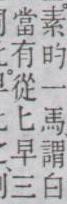 素旳一馬謂白
當有從匕早三